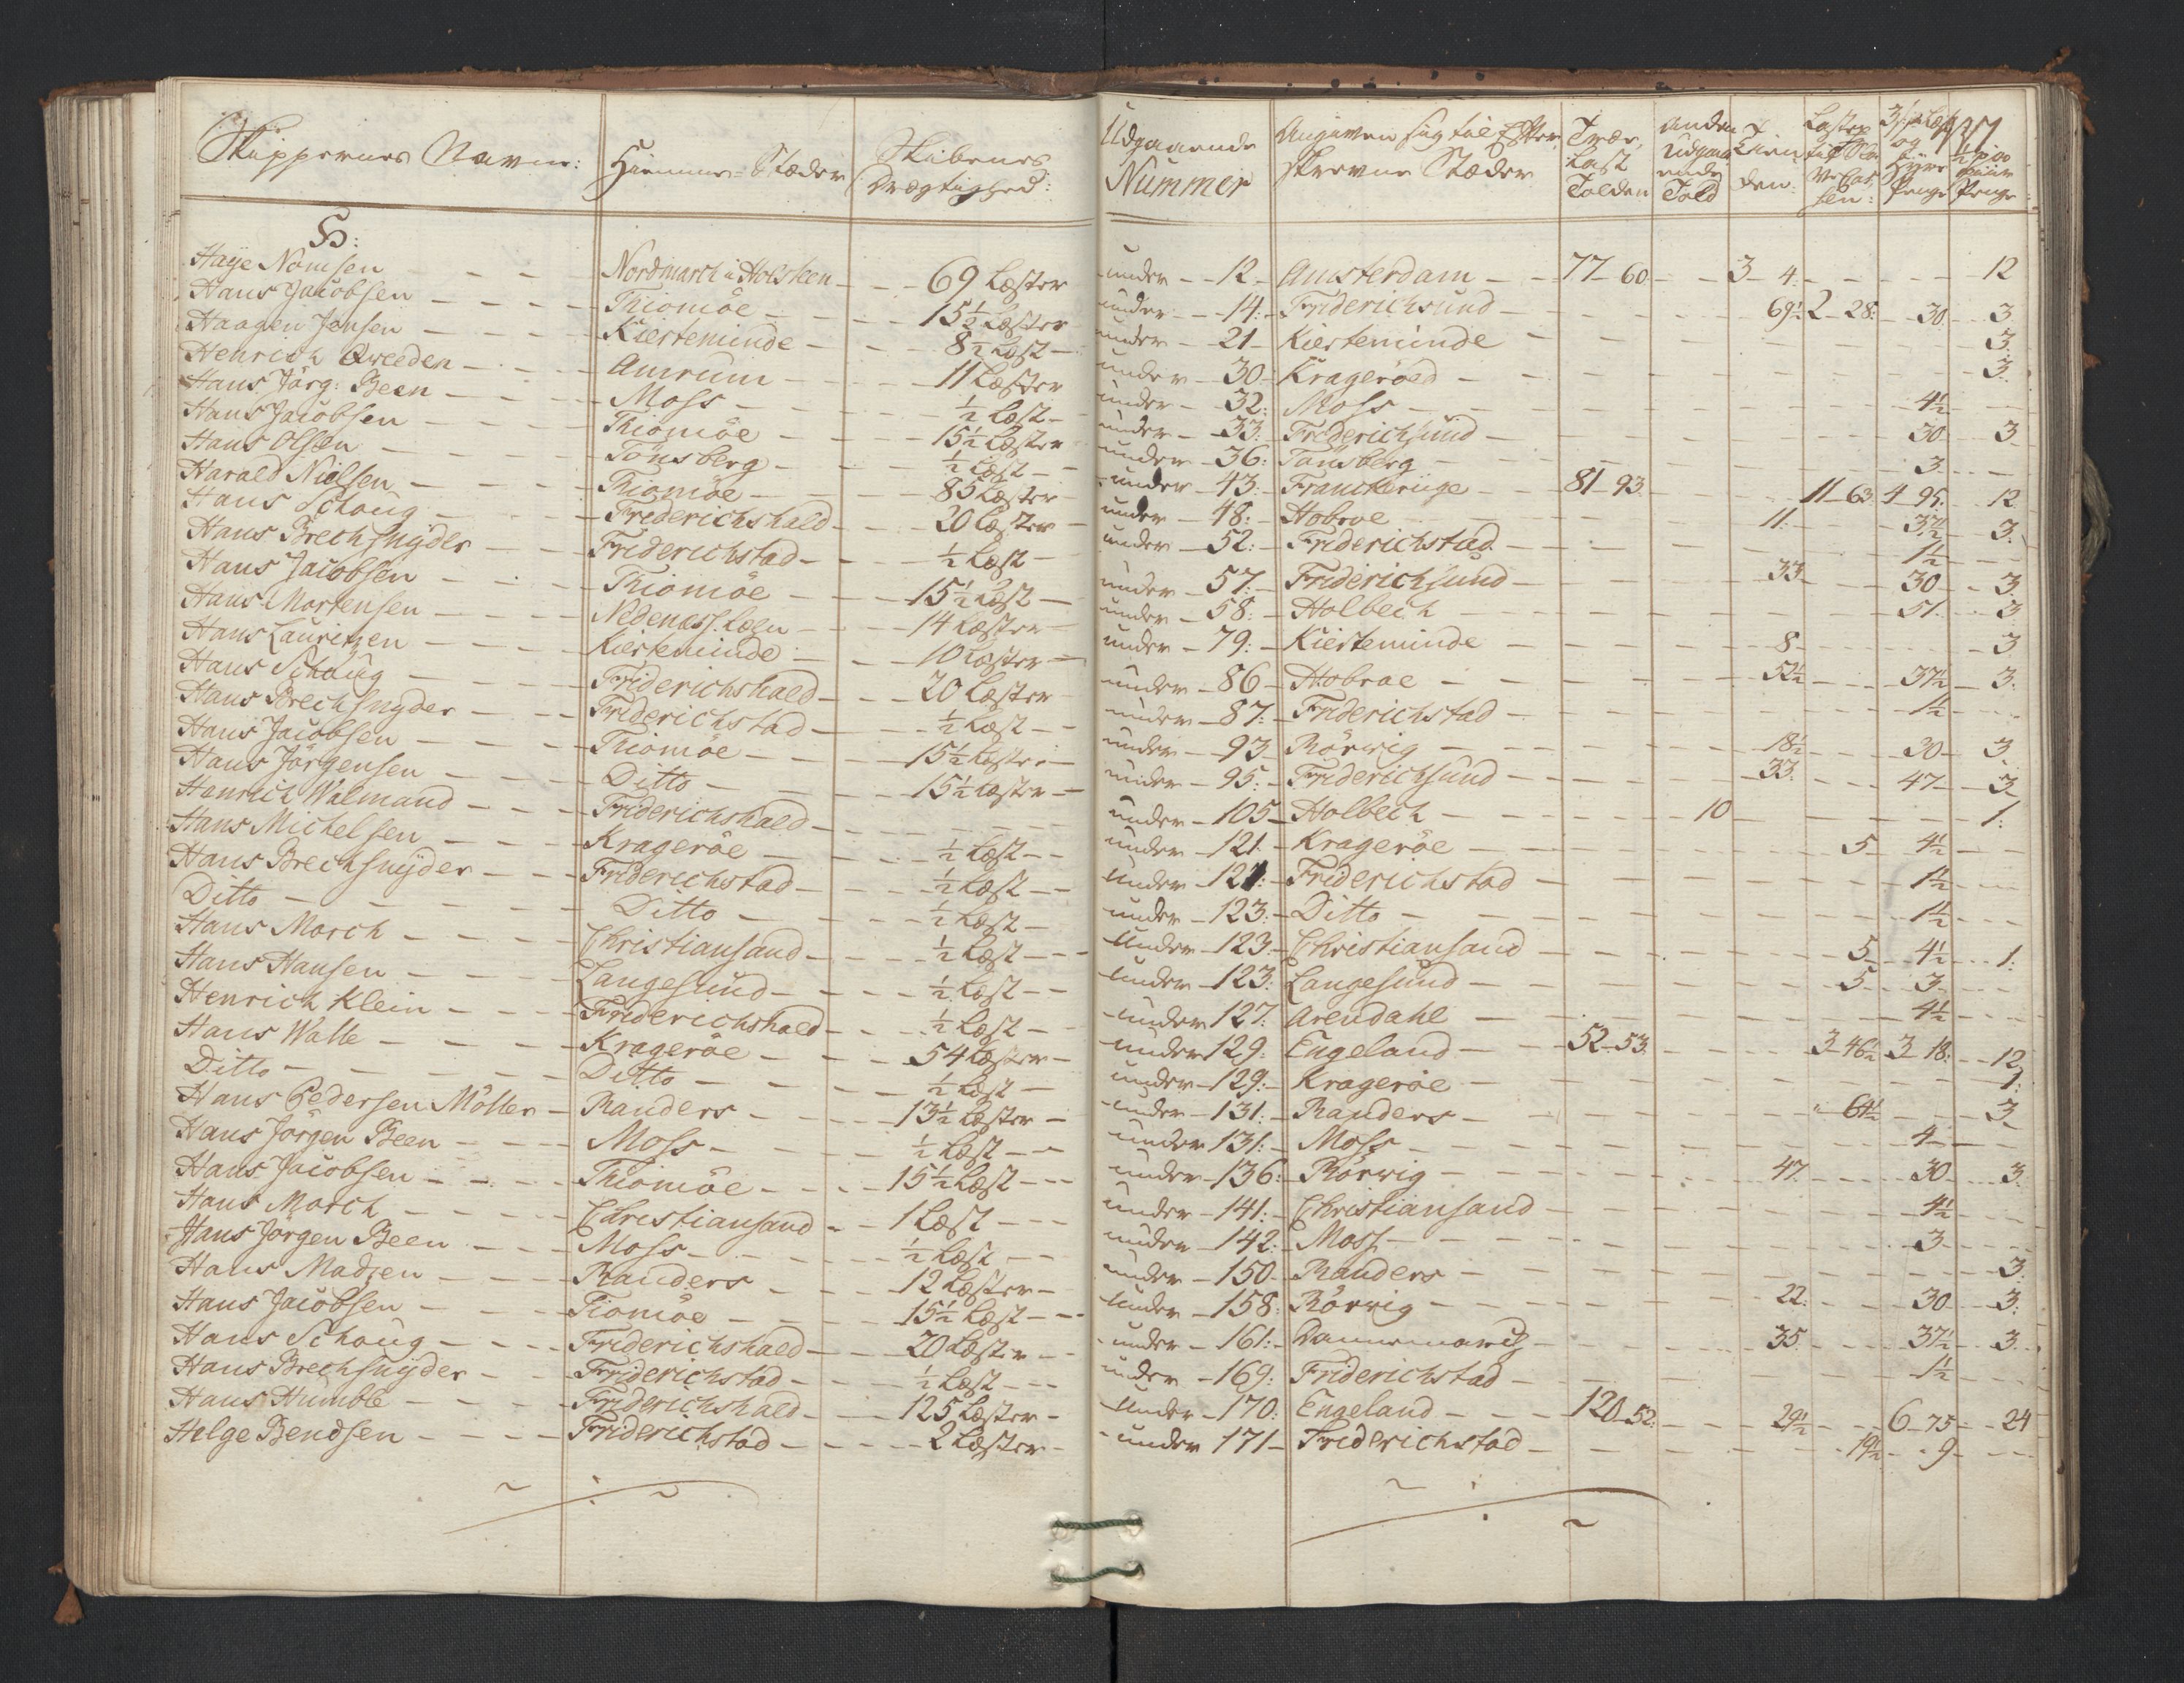 Skippernes Navne: Hiemme-Stæder Skibenes Drægtighed: Udgaaende Nummer Angiven sig til Efterskrevne Stæder Trælast Tolden Udgaaende Told Penge Penge
H:
Haye Nomsen Nordmarch i Holsteen 69 Læster under 12 Amsterdam 77 60 3 4 12
Hans Jacobsen Thiomöe 15½ Læster under 14 Friderichsund 69½ 2 28 30 3
Haagen Jensen Kierteminde 8½ Læst under 21 Kierteminde 3
Henrich Qweeden Amrum 11 Læster under 30 Krageröed 3
Hans Jörg: Been Moss ½ Læst under 32 Moss 4½
Hans Jacobsen Thiomöe 15½ Læster under 33 Friderichsund 30 3
Hans Olsen Tönsberg ½ Læst under 36 Tönsberg 3
Harald Nielsen Thiomöe 85 Læster under 43 Franckerige 81 93 11 63 4 95 12
Hans Schoug Friderichshald 20 Læster under 48 Hobroe 11 37½ 3
Hans Brechsnyder Friderichstad ½ Læst under 52 Friderichstad 1½
Hans Jacobsen Thiomöe 15½ Læst under 57 Friderichsund 33 30 3
Hans Mortensen Nedenæss Læen 14 Læster under 58 Holbech 51 3
Hans Lauritzen Kierteminde 10 Læster under 79 Kierteminde 8 3
Hans Schoug Friderichshald 20 Læster under 86 Hobroe 52½ 37½ 3
Hans Brechsnyder Friderichstad ½ Læst under 87 Friderichstad 1½
Hans Jacobsen Thiomöe 15½ Læster under 93 Rörvig 18½ 30 3
Hans Jörgensen Ditto 15½ Læster under 95 Friderichsund 33 47 3
Henrich Walmand Friderichshald under 105 Holbech 10 1
Hans Michelsen Krageröe ½ Læst under 121 Krageröe 5 4½
Hans Brechsnyder Friderichstad ½ Læst under 121 Friderichstad 1½
Ditto Ditto ½ Læst under 123 Ditto 1½
Hans March Christiansand ½ Læst under 123 Christiansand 5 4½ 1
Hans Hansen Langesund ½ Læst under 123 Langesund 5 3
Henrich Klein Friderichshald ½ Læst under 127 Arendahl 4½
Hans Walle Krageröe 54 Læster under 129 Engeland 52 53 3 46½ 3 18 12
Ditto Ditto ½ Læst under 129 Krageröe 1
Hans Pedersen Möller Randers 13½ Læster under 131 Randers 61½ 3
Hans Jörgen Been Moss ½ Læst under 131 Moss 4
Hans Jacobsen Thiomöe 15½ Læst under 136 Rörvig 47 30 3
Hans March Christiansand 1 Læst under 141 Christiansand 4½
Hans Jörgen Been Moss ½ Læst under 142 Moss 3
Hans Madsen Randers 12 Læster under 150 Randers 3
Hans Jacobsen Tiomöe 15½ Læst under 158 Rörvig 22 30 3
Hans Schoug Friderichshald 20 Læster under 161 Dannemarch 35 37½ 3
Hans Brechsnyder Friderichstad ½ Læst under 169 Friderichstad 1½
Hans Humble Friderichshald 125 Læster under 170 Engeland 120 52 29½ 6 75 24
Helge Bendsen Friderichstad 2 Læster under 171 Friderichstad 19½ 9